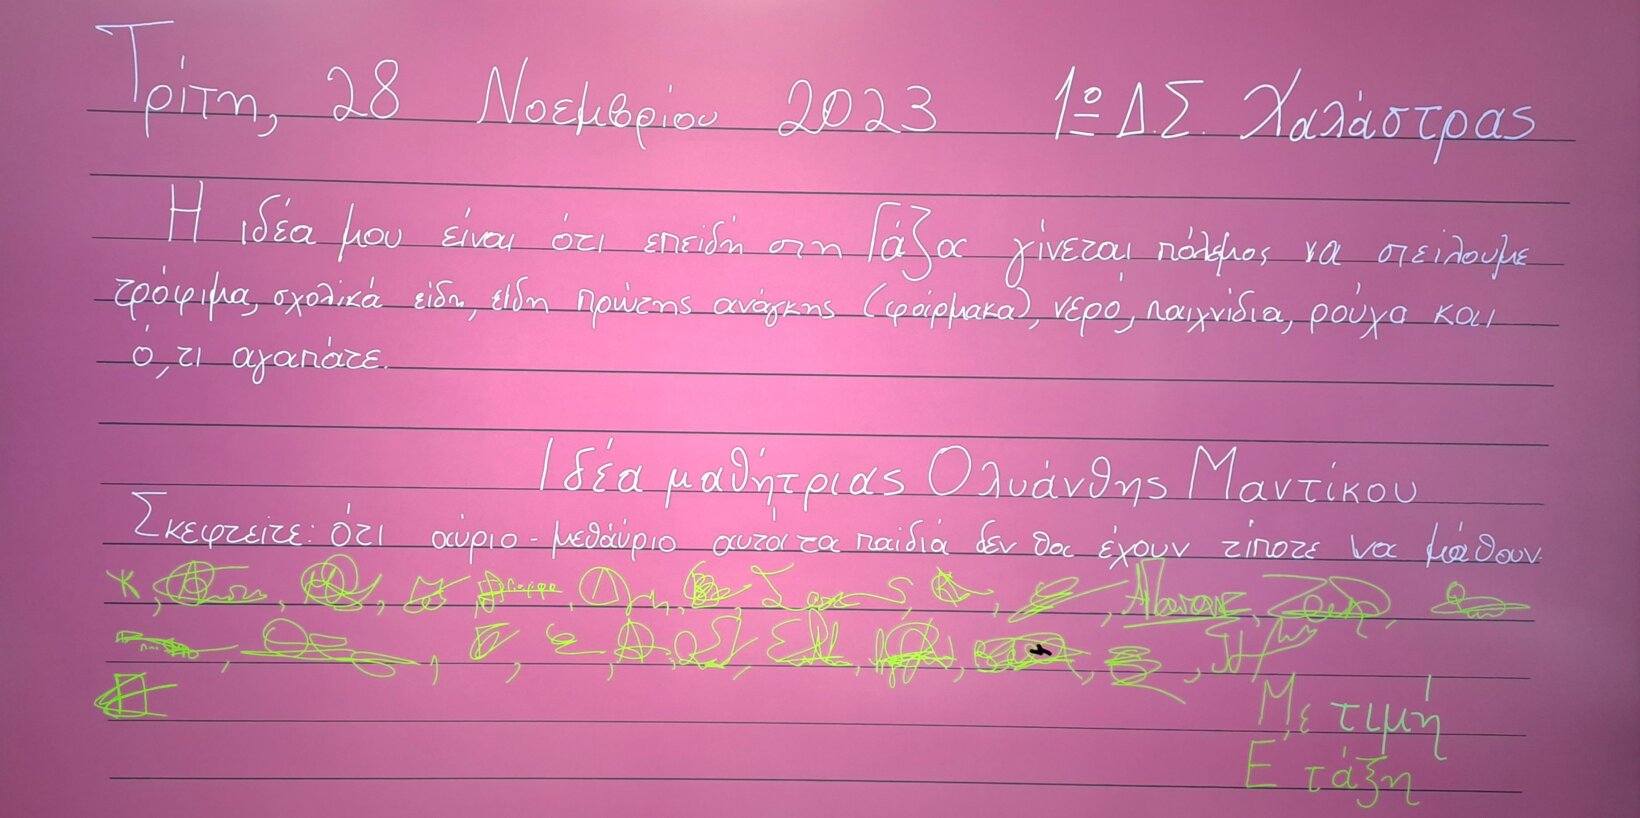 Τρίτη, 28 Νοεμβρίου 2023 1ο Δ.Σ. Χαλάστρας
Η ιδέα μου είναι ότι επειδή στη Γάζα γίνεται πόλεμος να στείλουμε
τρόφιμα, σχολικά είδη, είδη πρώτης ανάγκης (φάρμακα), νερό, παιχνίδια, ρούχα και
ό,τι αγαπάτε.
Ιδέα μαθήτριας Ολυάνθης Μαντίκου
Σκεφτείτε: ότι αύριο - μεθαύριο αυτά τα παιδιά δεν θα έχουν τίποτε να μάθουν.
Με τιμή
Ε τάξη